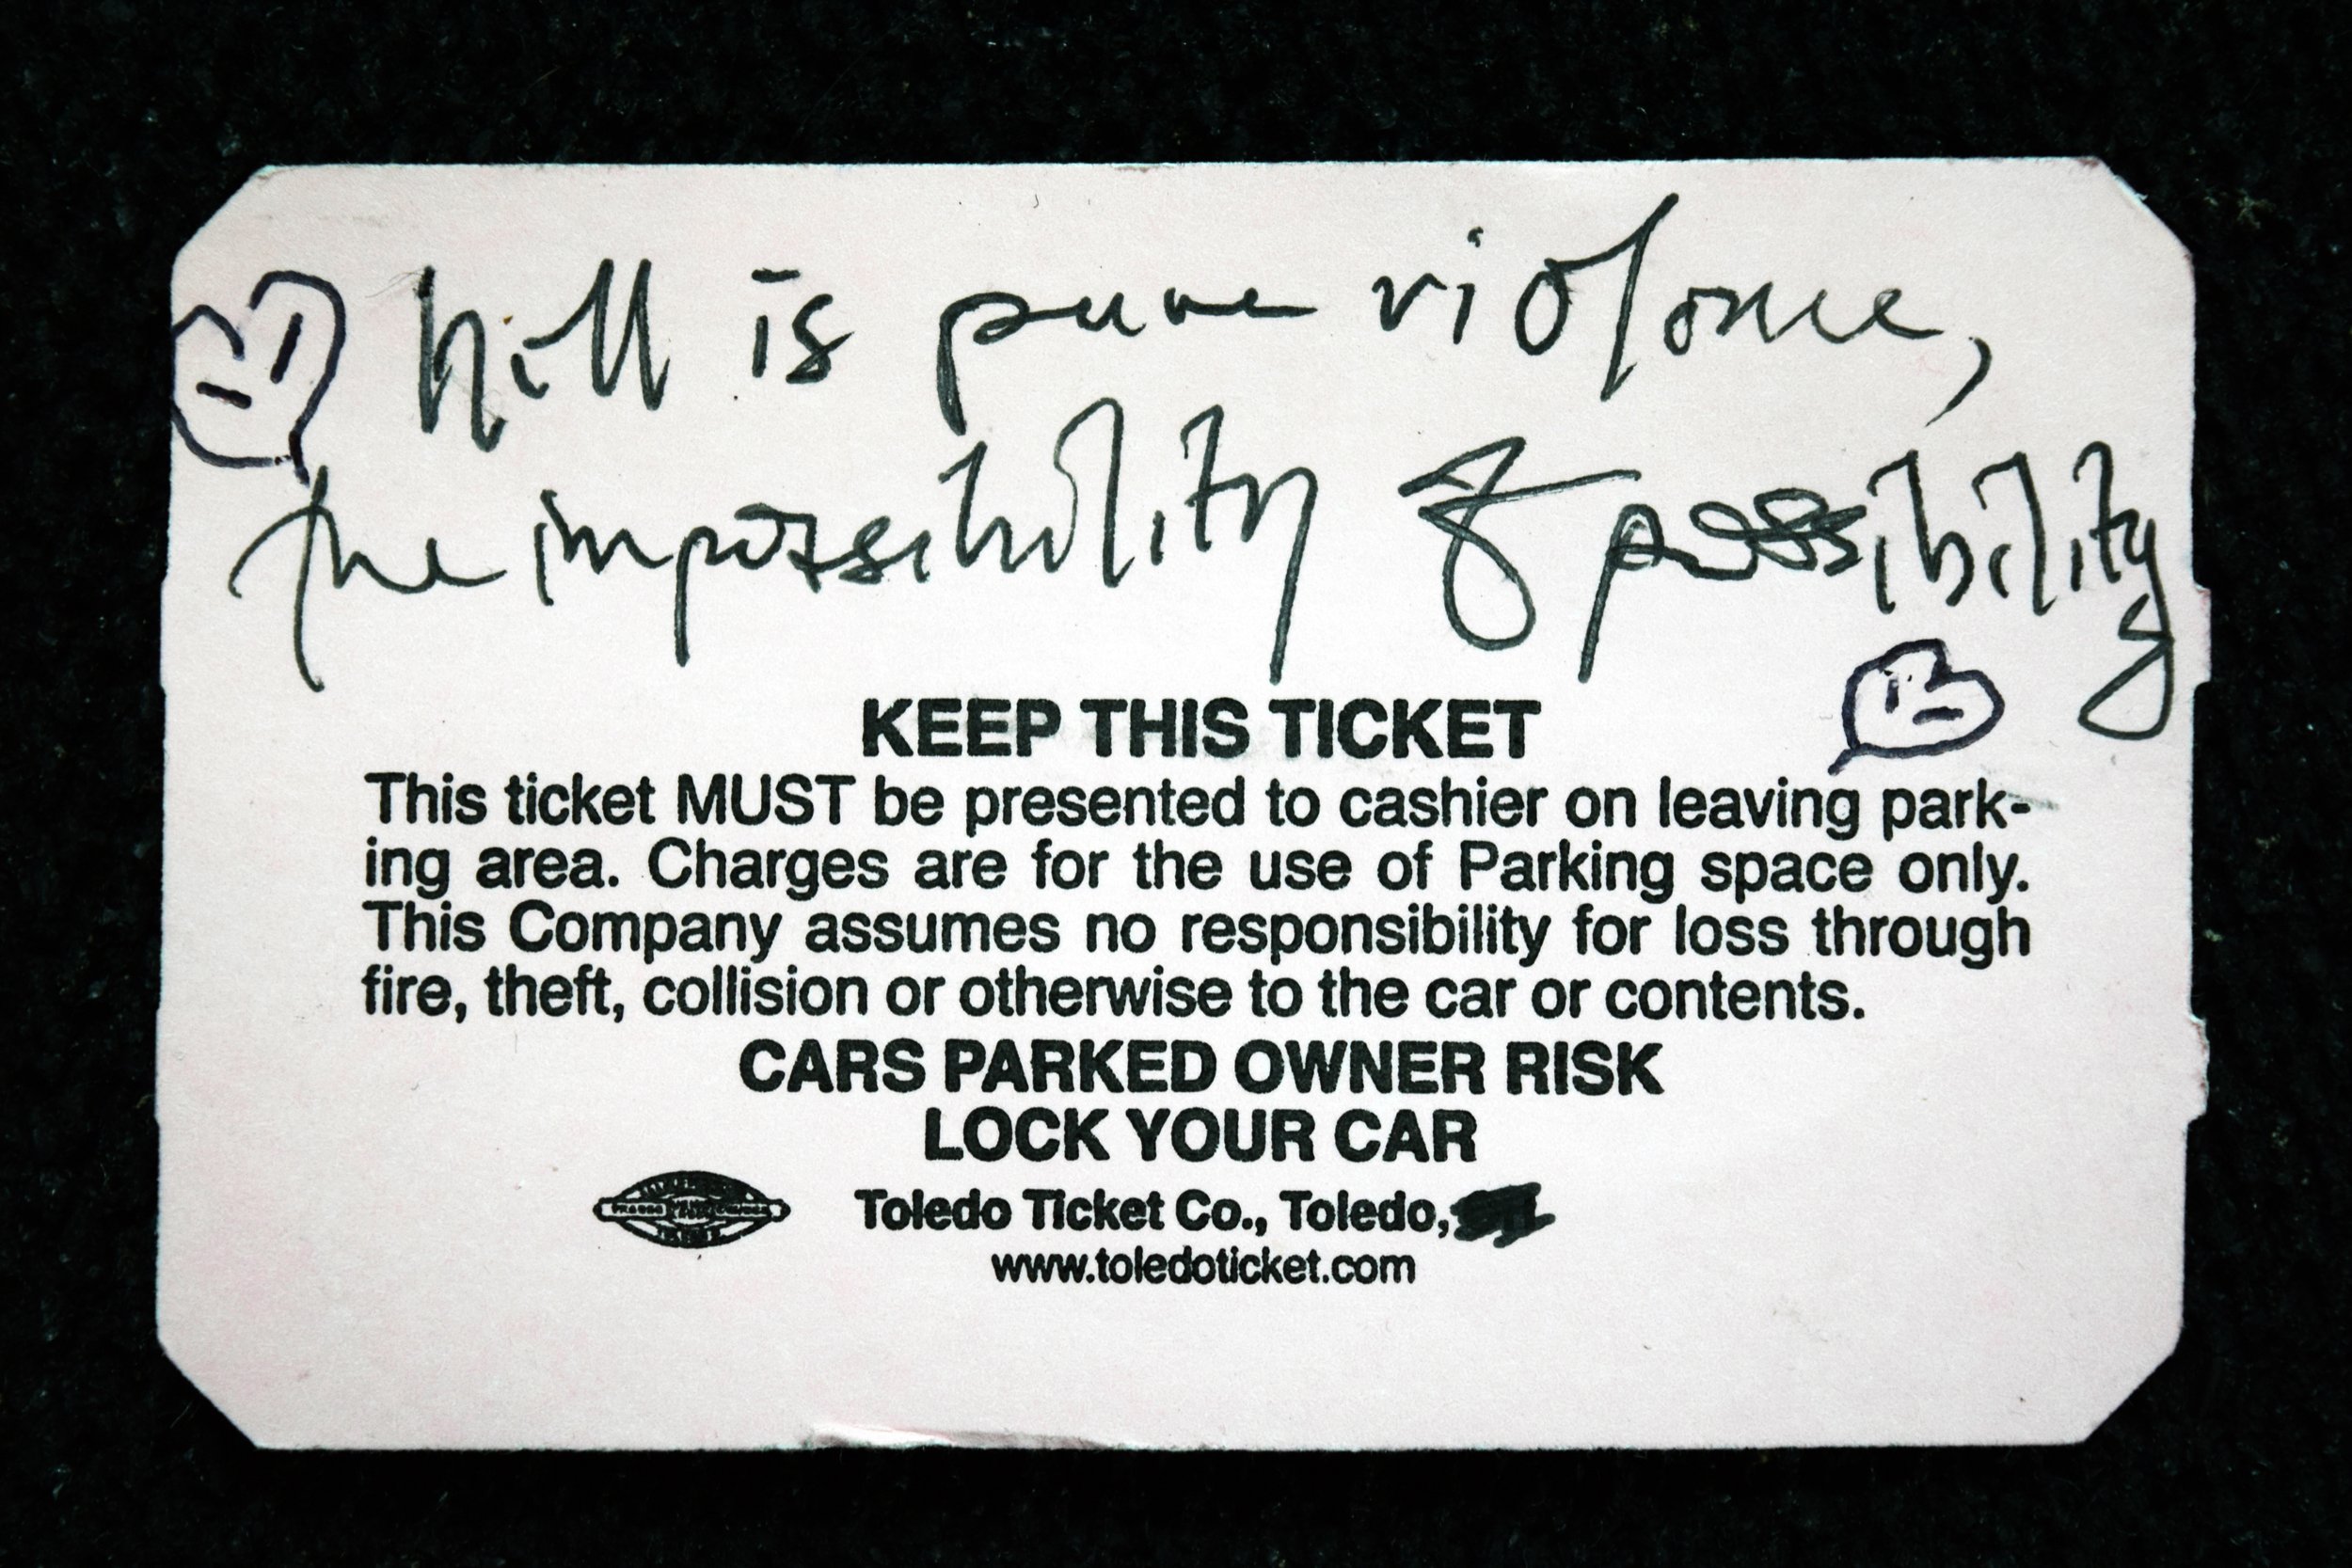 hell is pure violence,
the impossibility of possibility
KEEP THIS TICKET
This ticket MUST be presented to cashier on leaving park-
ing area. Charges are for the use of Parking space only.
This Company assumes no responsibility for loss through
fire, theft, collision or otherwise to the car or contents.
CARS PARKED OWNER RISK
LOCK YOUR CAR
Toledo Ticket Co., Toledo,
www.toledoticket.com